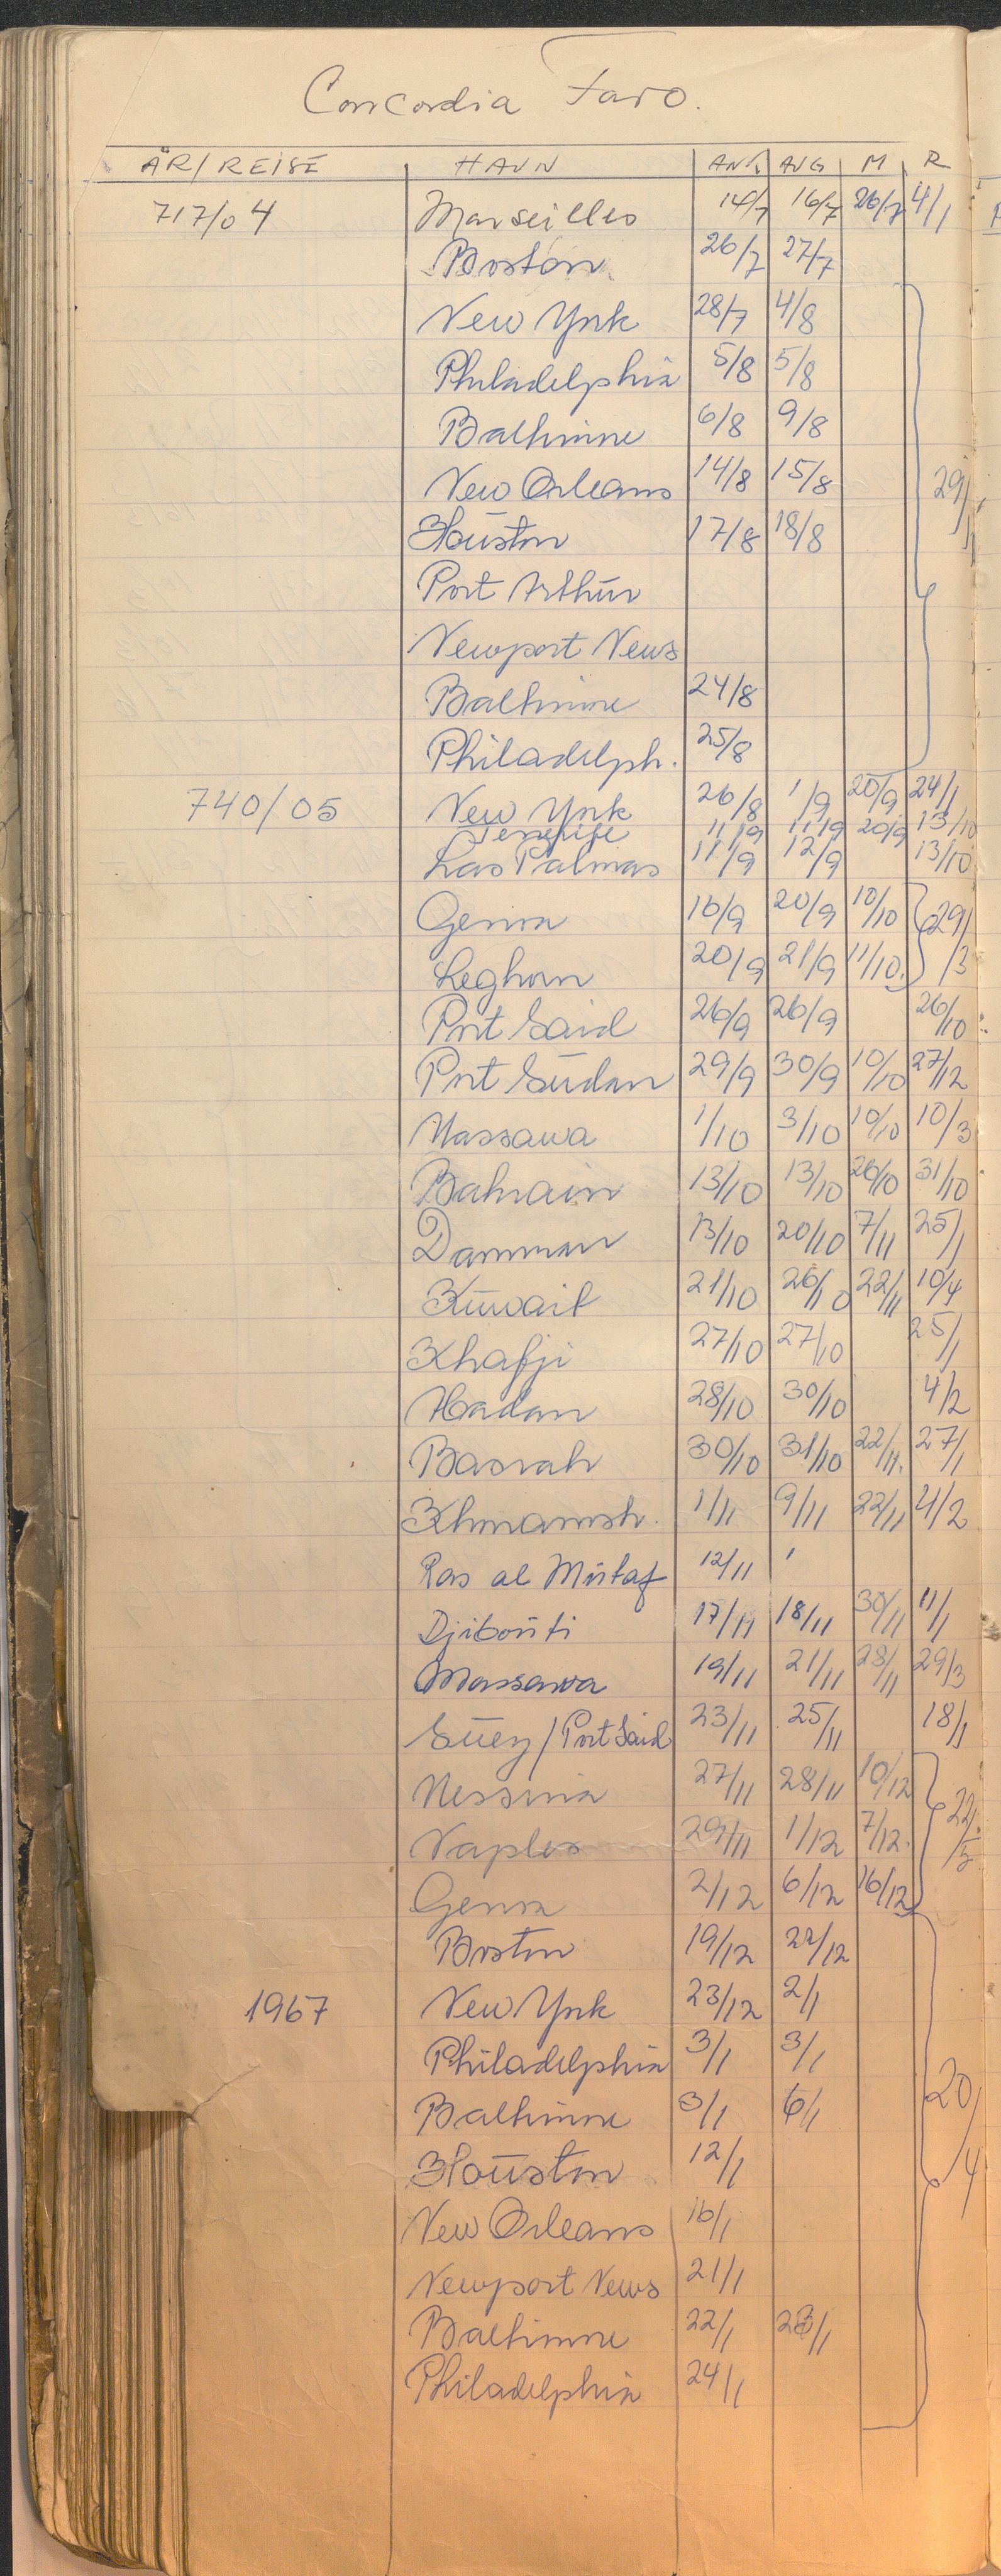 Concordia Faro.
ÅR/REISE HAVN ANK AVG M R
717/04 Marseilles 14/7 16/7 26/7 4/1
Boston 26/7 27/7
New York 28/7 4/8
Philadelphia 5/8 5/8
Baltimore 6/8 9/8
New Orleans 14/8 15/8 29/1
Houston 17/8 18/8
Port Arthur
Newport News
Baltimore 24/8
Philadelph. 25/8
740/05 New York 26/8 1/9 20/9 24/1
Tenerife 11/9 11/9 20/9 13/10
Las Palmas 11/9 12/9 13/10
Genoa 16/9 20/9 10/10 29/3
Leghorn 20/9 21/9 11/10
Port Said 26/9 26/9 26/10
Port Sudan 29/9 30/9 10/10 27/12
Massawa 1/10 3/10 10/10 10/3
Bahrain 13/10 13/10 26/10 31/10
Damman 13/10 20/10 7/11 25/1
Kuwait 21/10 26/10 22/11 10/4
Khafji 27/10 27/10 25/1
Abadan 28/10 30/10 4/2
Basrah 30/10 31/10 22/11 27/1
Khoramsh. 1/11 9/11 22/11 4/2
Ras al Mishaf 12/11
Djibouti 17/11 18/11 30/11 11/1
Massawa 19/11 21/11 28/11 29/3
Suez/Port Said 23/11 25/11 18/1
Messina 27/11 28/11 10/12
Naples 29/11 1/12 7/12 22/5
Genoa 2/12 6/12 16/12
Boston 19/12 22/12
1967 New York 23/12 2/1
Philadelphia 3/1 3/1
Baltimore 3/1 6/1 20/4
Houston 12/1
New Orleans 16/1
Newport News 21/1
Baltimore 22/1 23/1
Philadelphia 24/1